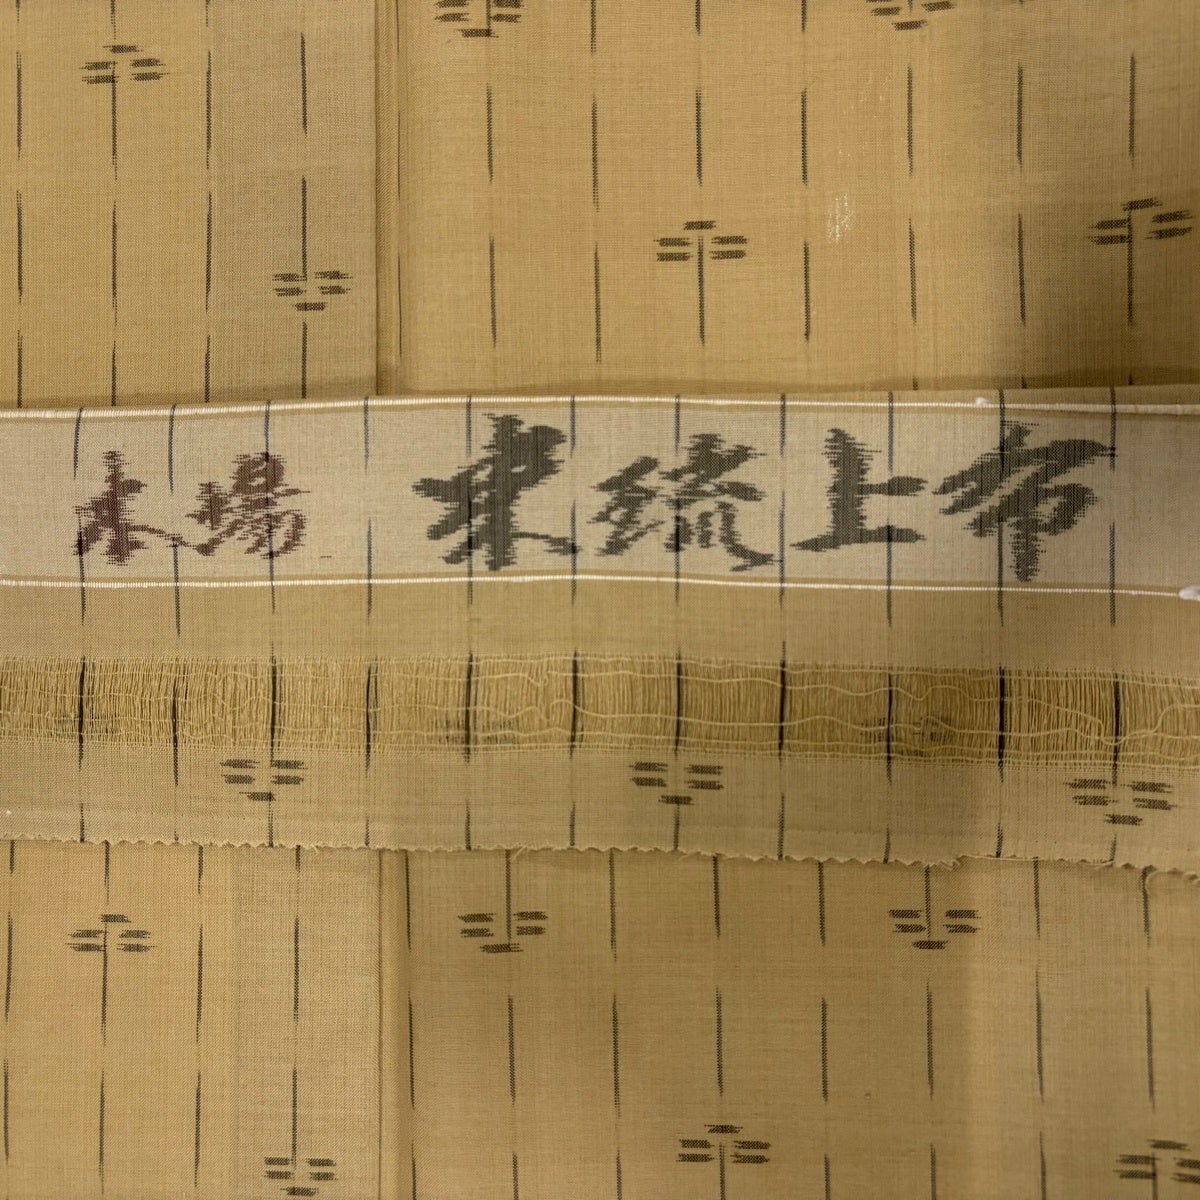 本場 東琉上布